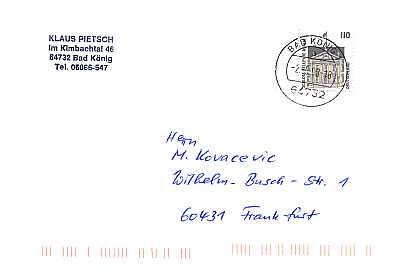 KLAUS PIETSCH
Im Kimbachtal 46
64732 Bad König
Tel. 06066-547
110
BAD KÖNIG
64732
Herrn
M. Kovacevic
Wilhelm-Busch-Str. 1
60431 Frankfurt